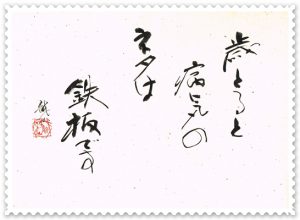 歳とると
病気の
ネタは
鉄板です